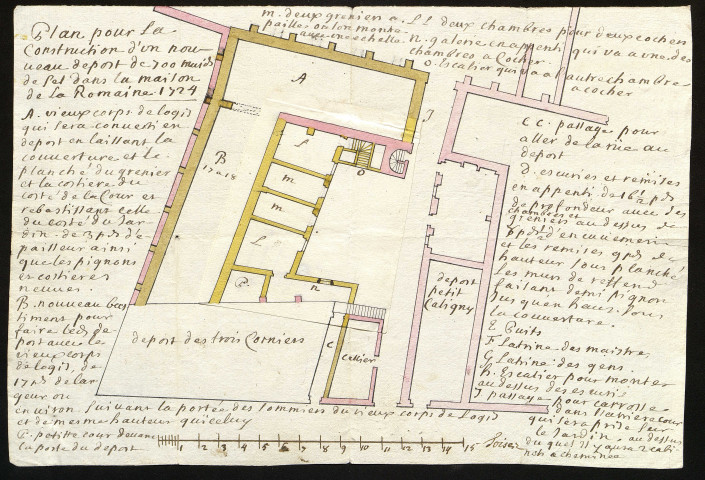 Plan pour La
Construction d'un nou-
ueau deport de 700 muids
de sel dans la maison
de la Romaine 1724
A. vieux corps de logis
qui sera conuerti en
deport en laissant la
couuerture et le
planché du grenier
et la costiere du
costé de la Cour et
rebastissant celle
du costé du Jar
din de 3 pds d'é
paisseur ainsi
que les pignons
et costieres
neuues.
B. nouueau bas
timent pour
faire led. de-
port auec le
vieux corps
de logis, de
17 pds de lar
geur ou
enuiron suiuant la portée des sommiers du vieux corps de Logis
et de mesme hauteur qu'iceluy
C. petitte cour deuant
la porte du deport
m. deux grenier a
paille ou lon monte
auec une echelle
L L deux chambres pour deux cochers
n. galerie en appenti qui va a une des
chambres a Cocher
o. Escalier qui va a l'autre chambre
a cocher
CC. passage pour
aller de la rue au
deport
D. escuries et remises
en appenti de 16 pds 1/2
de profondeur auec des
chambres et
greniers au dessus de
pds 1/2 d'encuiement
et les remises 9 pds de
hauteur sous planché
Les murs de reffend
faisant demi pignon
Jusqu'en haut sous
la couuerture.
E Puits
F Latrine des maistres
G Latrine des gens.
h. Escalier pour monter
au dessus des escuries
J passage pour carrosse
dans l'arriere cour
qui sera prise sur
le Jardin, au dessus
du quel il y aura 2 cabi
nets a cheminée
A
J
B
17 a 18
f
m
m
L
P
o
n
C
Cellier
deport
petit
Caligny
deport des trois Corniers
1 2 3 4 5 6 7 8 9 10 11 12 13 14 15 Toises